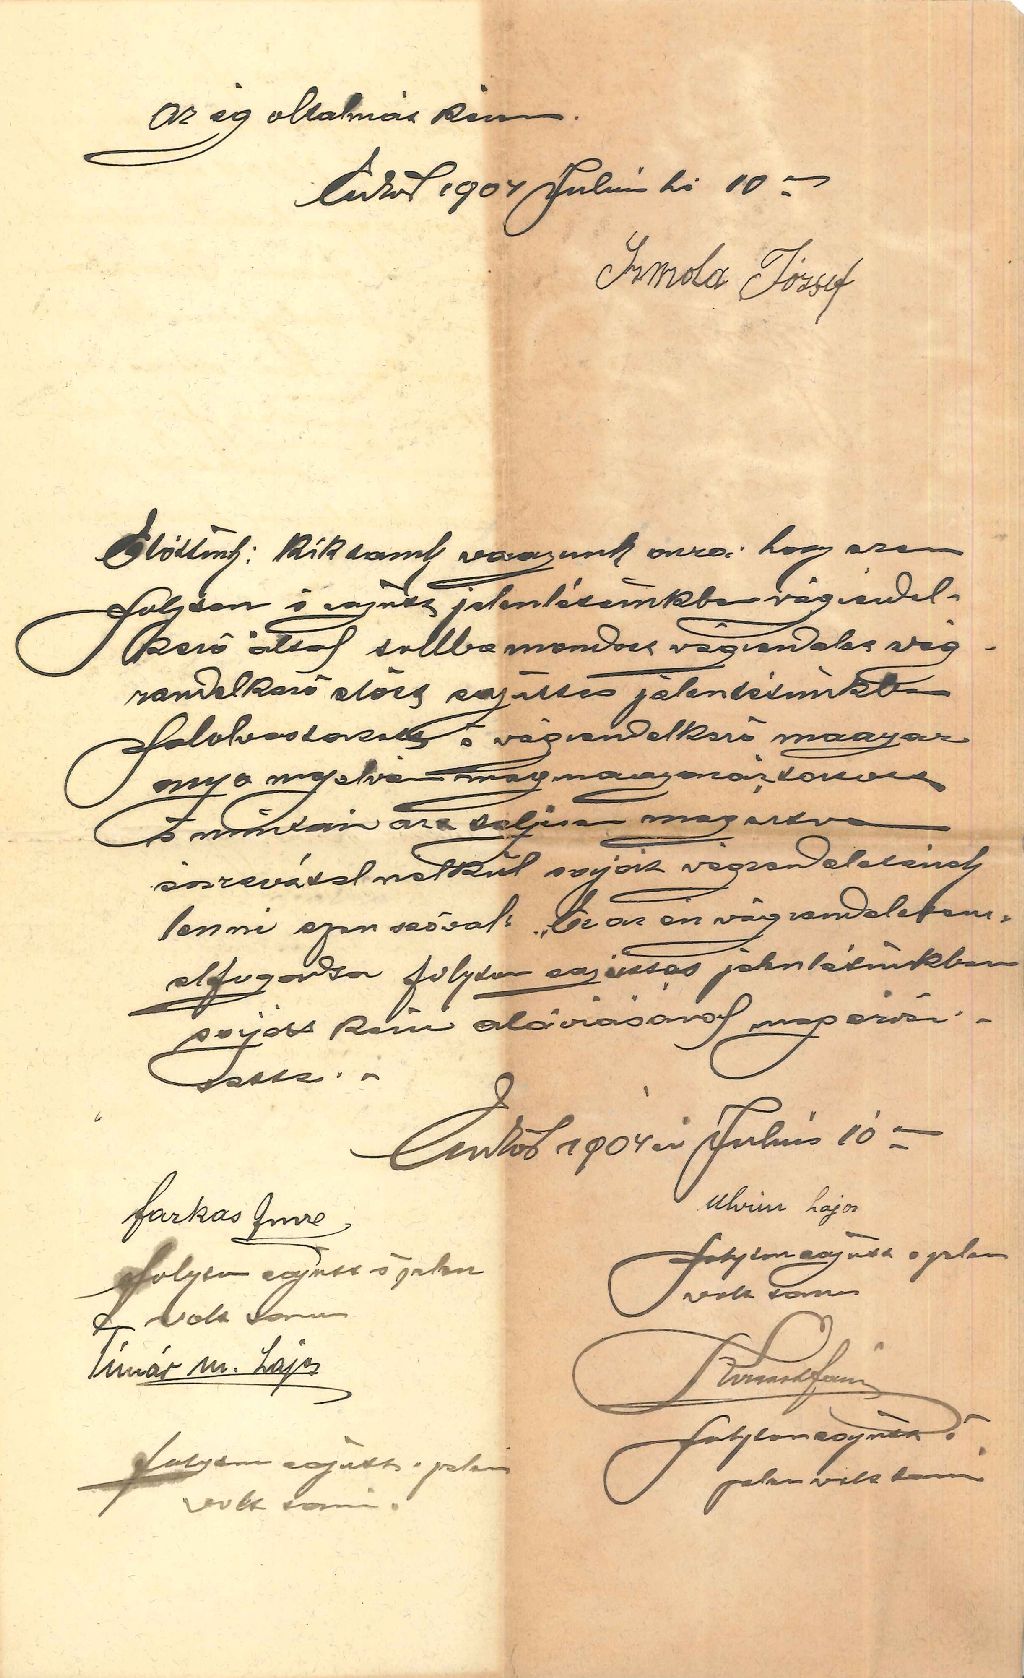 az ég oltalmát kérem.
1904 Julius hó 10 én
József
Előttünk: kik tanuk vagyunk arra: hogy ezen
folyton s együtt jelenlétünkbe végrendel-
kező által tollba mondott végrendelet vég-
rendelkező előtt együttes jelenlétünkbe
felolvastatott s végrendelkező magyar
anya nyelvén megmagyaráztatott
s miután azt teljesen megértve
észrevétel nélkül saját végrendeletének
lenni ezen szóval: "Ez az én végrendeletem"
elfogadta folyton együttes jelenlétünkben
saját kezü aláirásával megerősi-
tette. -
1904 év Julius 10 én
Farkas Imre
folyton együtt s jelen
volt tanu
Lajos
folyton együtt s jelen
volt tanu
Tímár M. Lajos
folyton együtt s jelen
volt tanu.
folyton együtt s
jelen volt tanu